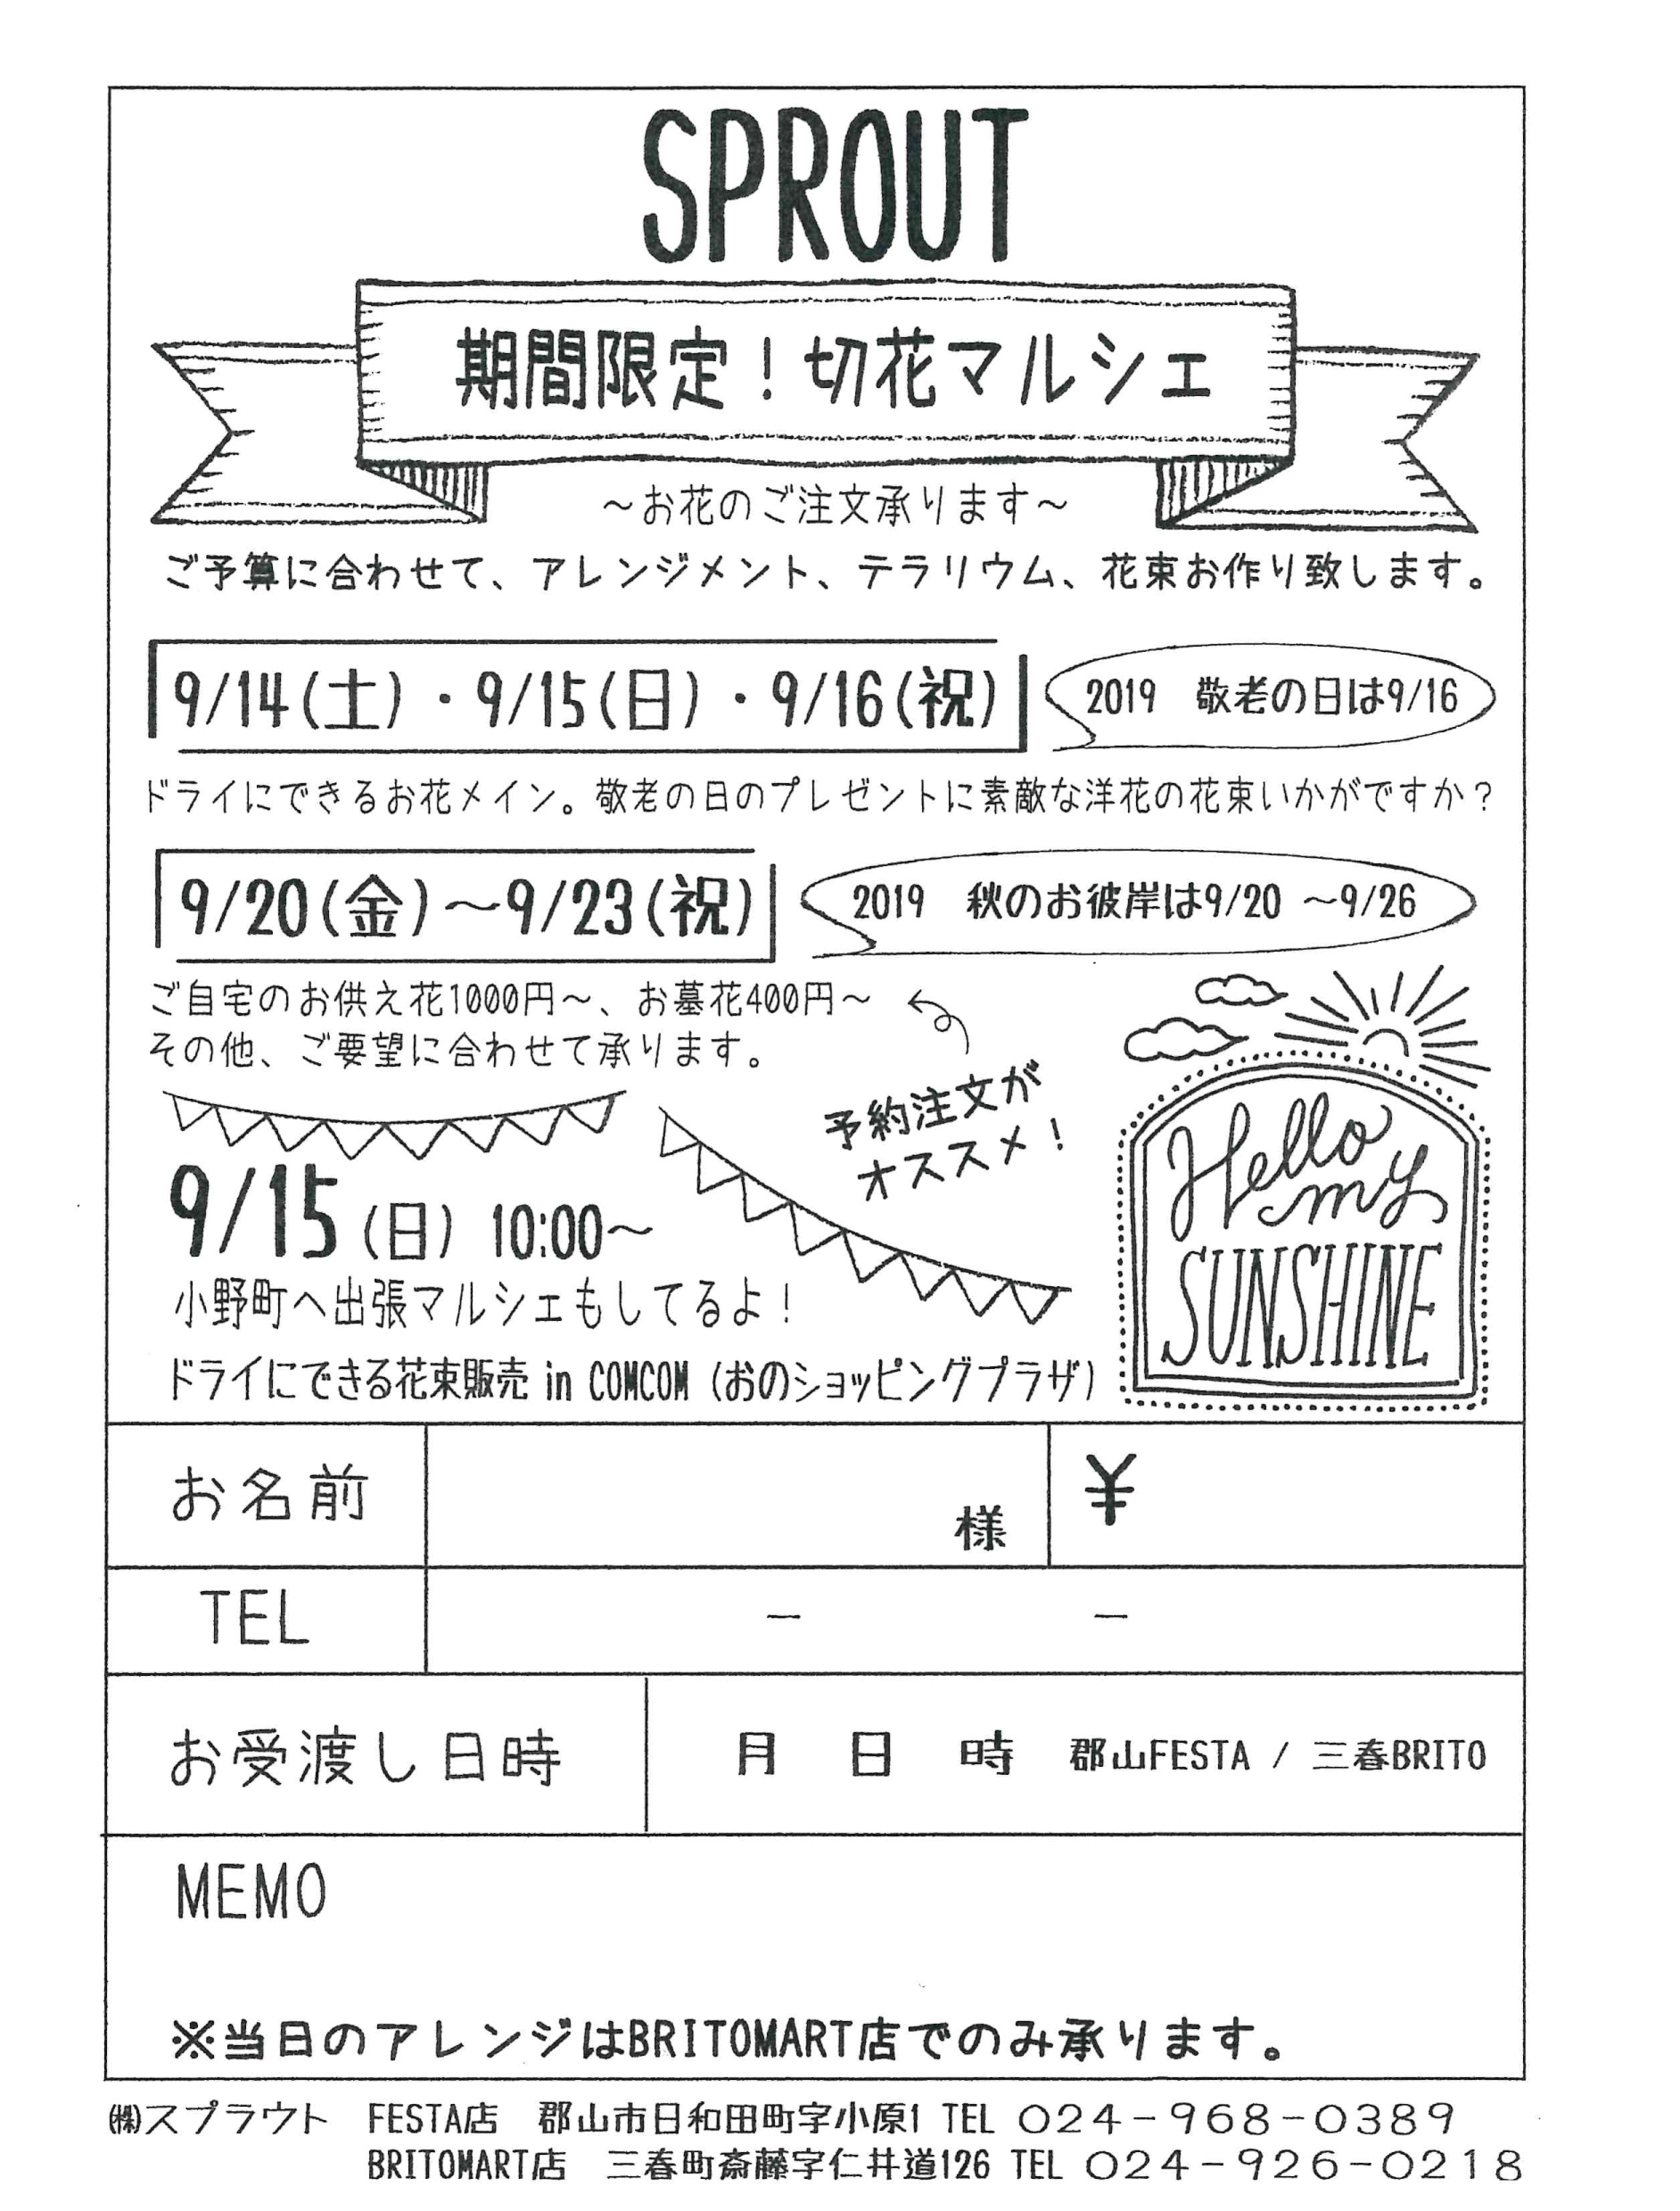 SPROUT
期間限定！切花マルシェ
～お花のご注文承ります～
ご予算に合わせて、アレンジメント、テラリウム、花束お作り致します。
9/14(土)・9/15(日)・9/16(祝)
2019 敬老の日は9/16
ドライにできるお花メイン。敬老の日のプレゼントに素敵な洋花の花束いかがですか？
9/20(金)～9/23(祝)
2019 秋のお彼岸は9/20 ～9/26
ご自宅のお供え花1000円～、お墓花400円～
その他、ご要望に合わせて承ります。
予約注文が
オススメ！
Hello
my
SUNSHINE
9/15(日) 10:00～
小野町へ出張マルシェもしてるよ！
ドライにできる花束販売 in COMCOM (おのショッピングプラザ)
お名前 様 ¥
TEL － －
お受渡し日時 月 日 時 郡山FESTA / 三春BRITO
MEMO
※当日のアレンジはBRITOMART店でのみ承ります。
㈱スプラウト FESTA店 郡山市日和田町字小原1 TEL 024-968-0389
BRITOMART店 三春町斎藤字仁井道126 TEL 024-926-0218